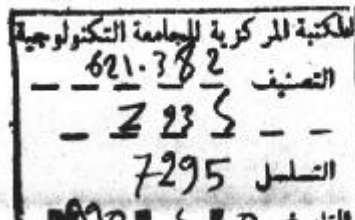 المكتبة المركزية للجامعة التكنولوجية
التصنيف 621.382
Z 23 S
التسلسل 7295